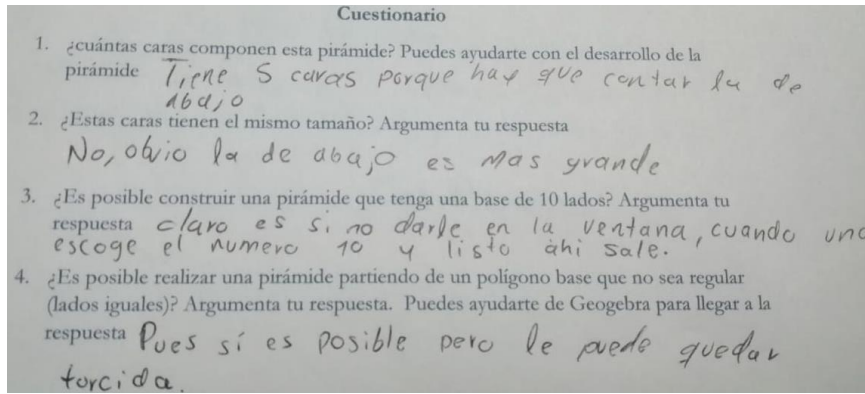 Cuestionario
1. ¿cuántas caras componen esta pirámide? Puedes ayudarte con el desarrollo de la
pirámide Tiene 5 caras porque hay que contar la de
abajo
2. ¿Estas caras tienen el mismo tamaño? Argumenta tu respuesta
No, obvio la de abajo es mas grande
3. ¿Es posible construir una pirámide que tenga una base de 10 lados? Argumenta tu
respuesta claro es si no darle en la ventana, cuando uno
escoge el numero 10 y listo ahi sale.
4. ¿Es posible realizar una pirámide partiendo de un polígono base que no sea regular
(lados iguales)? Argumenta tu respuesta. Puedes ayudarte de Geogebra para llegar a la
respuesta Pues sí es posible pero le puede quedar
torcida.